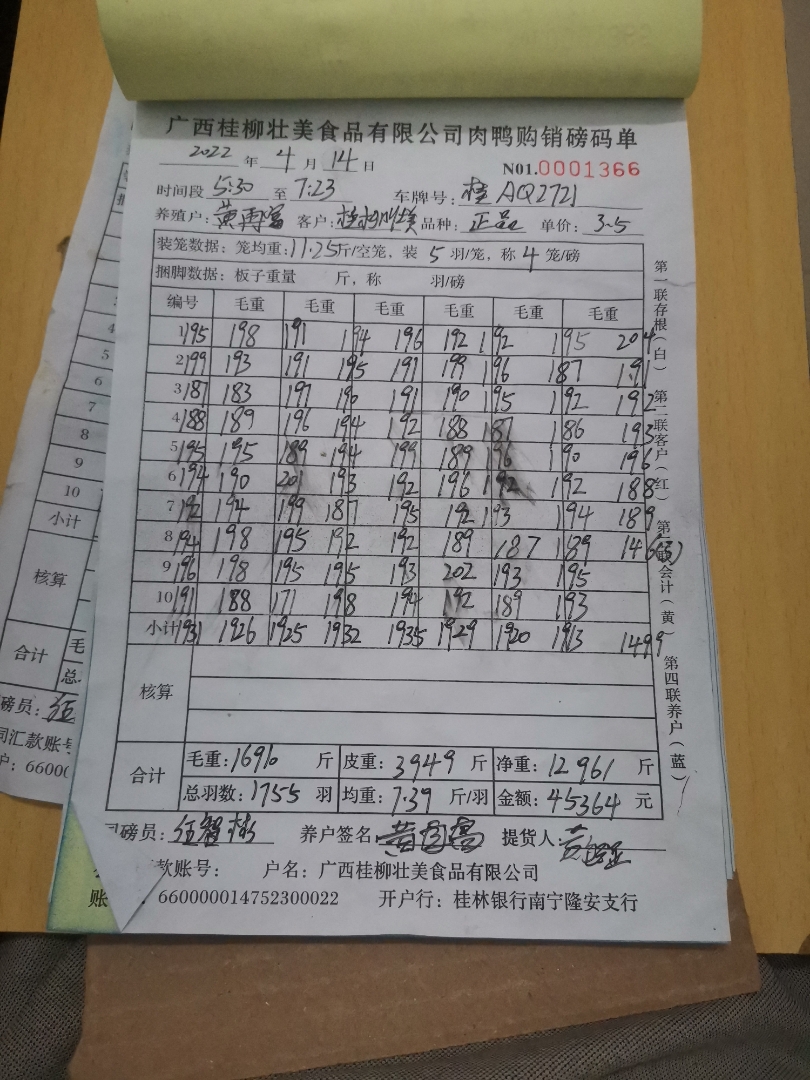 广西桂柳壮美食品有限公司肉鸭购销磅码单
2022 年 4 月 14 日 N01.0001366
时间段 5:30 至 7:23 车牌号: 桂 AQ2721
养殖户: 黄再富 客户: 桂柳壮美 品种: 正品 单价: 3.5
装笼数据: 笼均重: 11.25 斤/空笼, 装 5 羽/笼, 称 4 笼/磅
捆脚数据: 板子重量 斤, 称 羽/磅
编号 毛重 毛重 毛重 毛重 毛重 毛重
1 195 198 191 194 196 192 192 195 204
2 199 193 191 195 191 199 196 187 191
3 187 183 197 190 191 190 195 192 192
4 188 189 196 194 192 188 187 186 193
5 195 195 189 194 199 189 196 190 196
6 194 190 201 193 192 196 192 192 188
7 192 194 199 187 195 192 193 194 189
8 194 198 195 192 192 189 187 189 146
9 196 198 195 195 193 202 193 195
10 191 188 171 198 194 192 189 193
小计 1931 1926 1925 1932 1935 1929 1920 1913 1499
核算
合计 毛重: 16910 斤 皮重: 3949 斤 净重: 12961 斤
总羽数: 1755 羽 均重: 7.39 斤/羽 金额: 45364 元
司磅员: 养户签名 提货人:
款账号: 户名: 广西桂柳壮美食品有限公司
账 660000014752300022 开户行: 桂林银行南宁隆安支行
第一联存根(白) 第二联客户(红) 第三联会计(黄) 第四联养户(蓝)
5
6
7
8
9
10
小计
核算
合计 毛
总
磅员:
司汇款账号
户: 66000